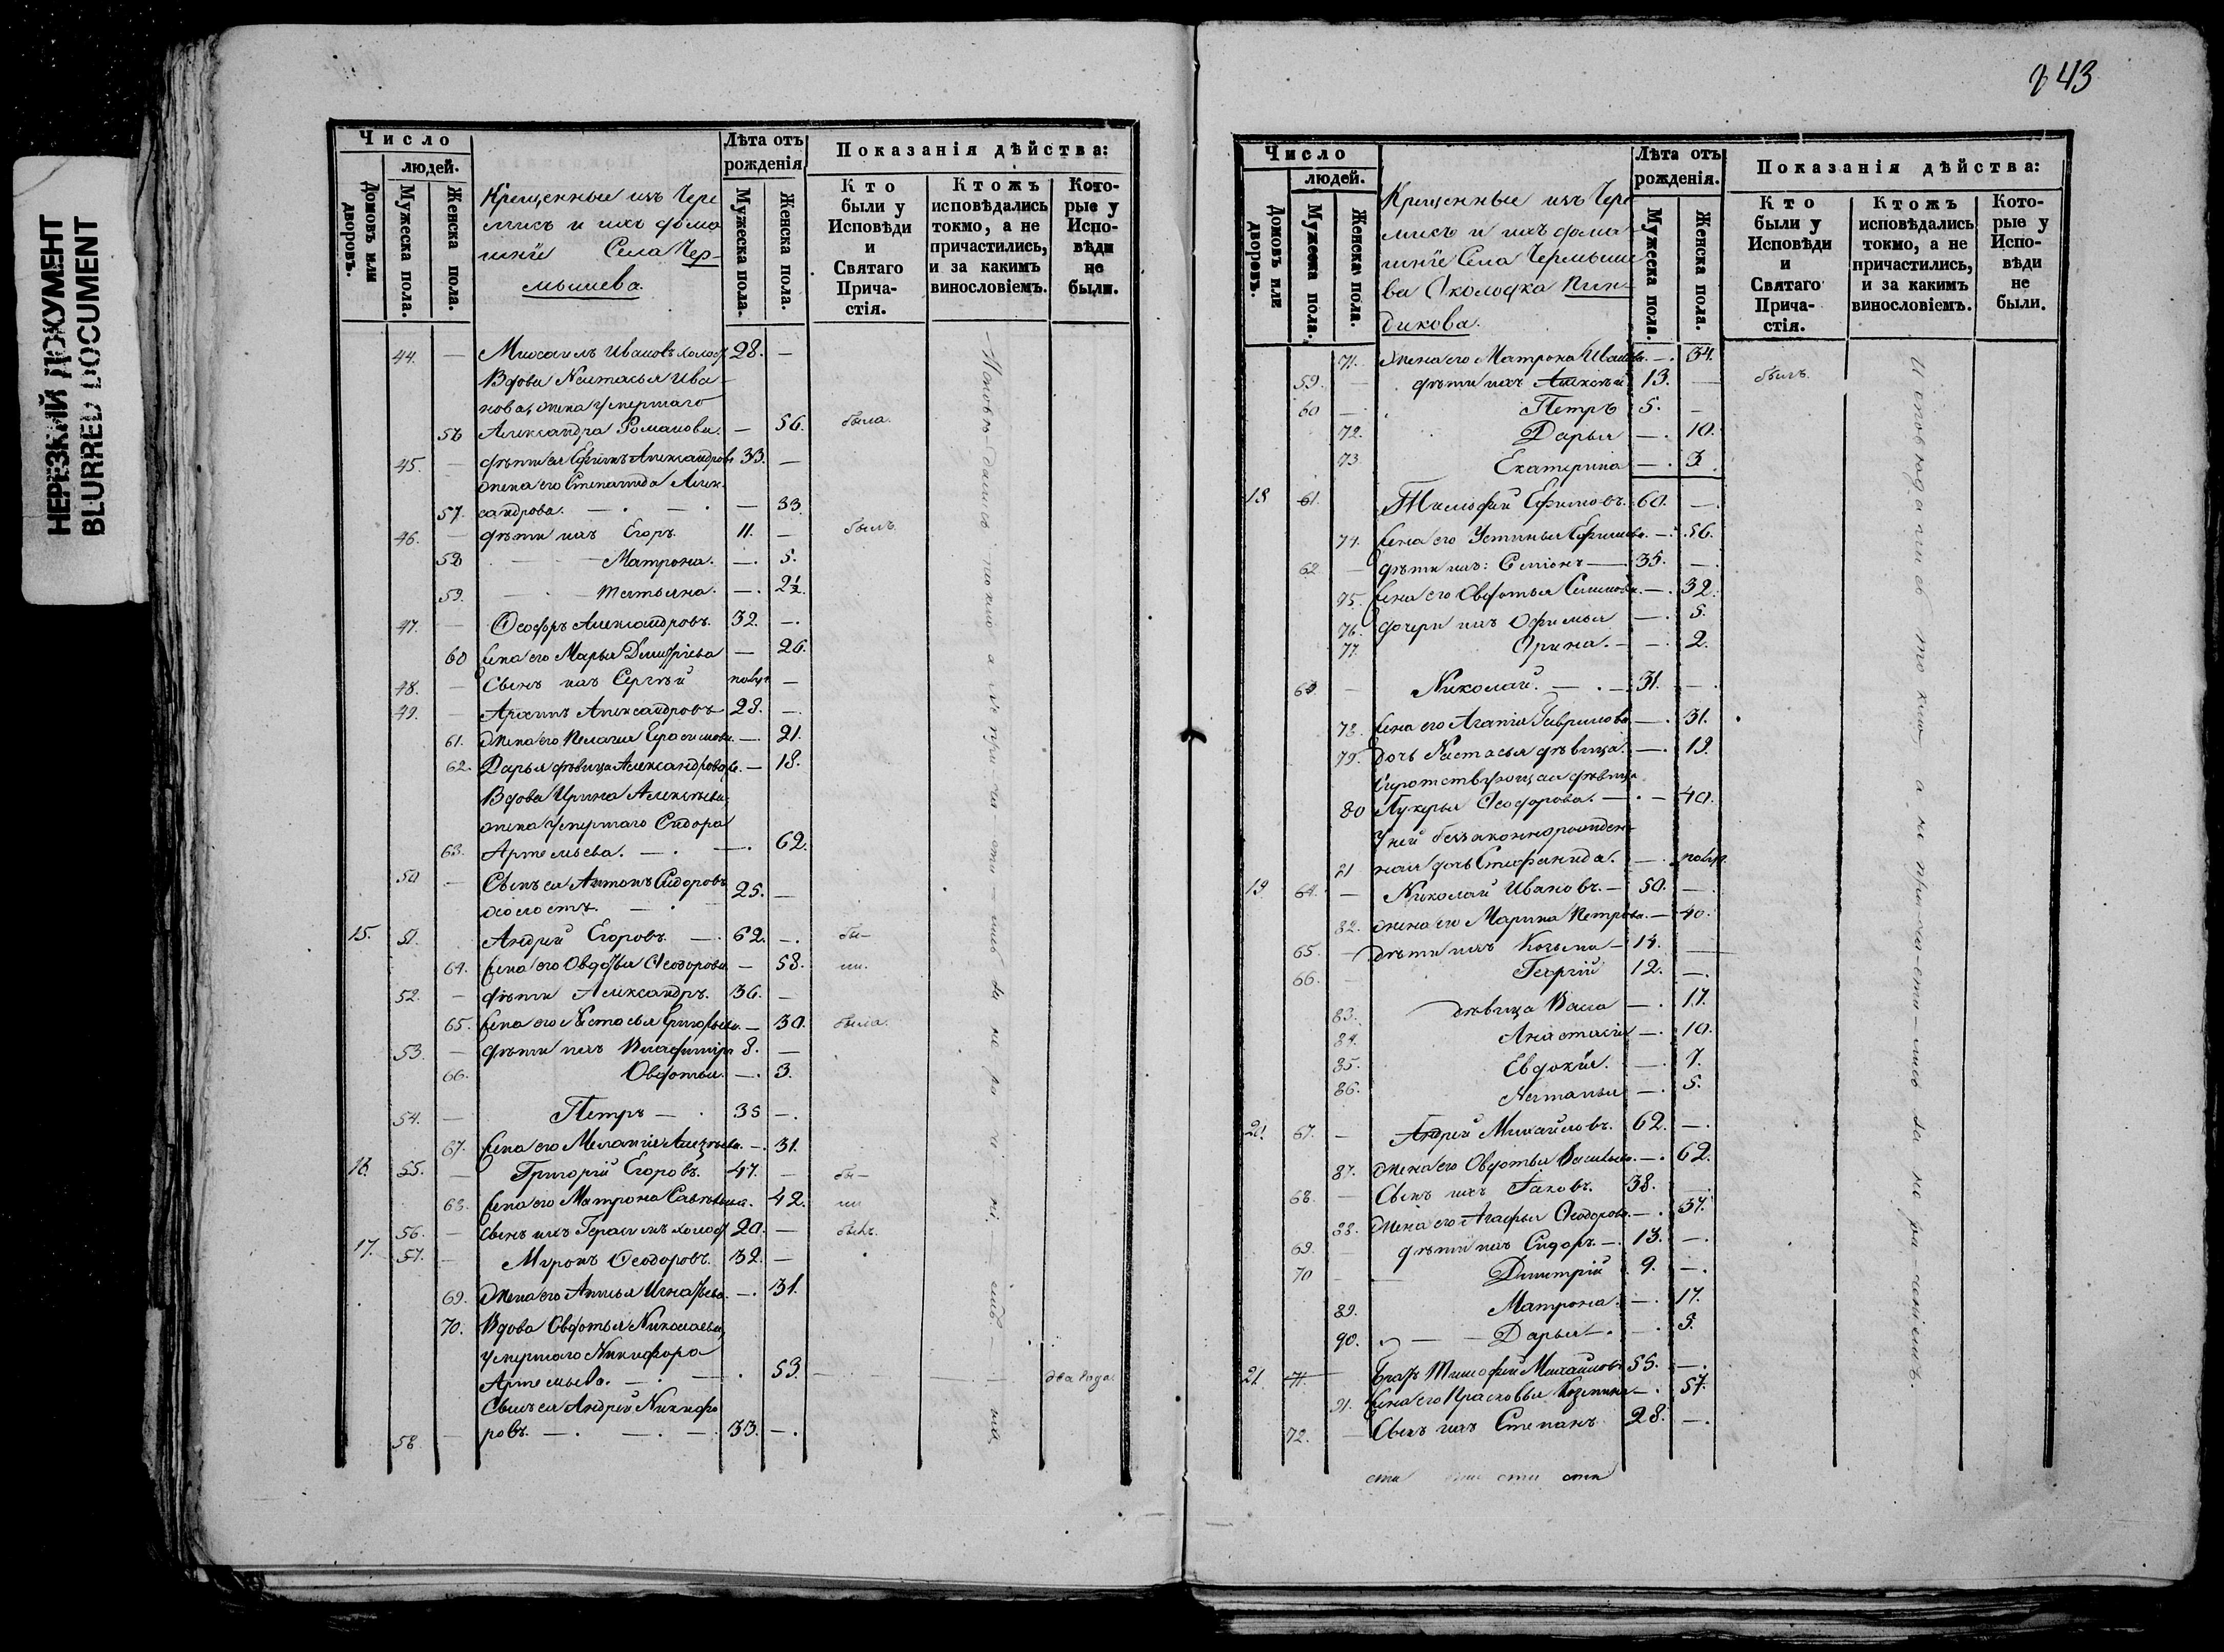 НЕРЕЗКИЙ ДОКУМЕНТ
BLURRED DOCUMENT
Число
людей.
Домовъ или дворовъ.
Мужеска пола.
Женска пола.
Крещенные изъ Чере
мисъ и ихъ дома
шніи Села Чер-
мышева.
Лѣта отъ рожденія
Мужеска пола.
Женска пола.
Показанія дѣйства:
Кто были у Исповѣди и Святаго Прича-стія.
Ктожъ исповѣдались токмо, а не причастились, и за какимъ винословіемъ.
Кото-рые у Испо-вѣди не были.
44. — Михаилъ Ивановъ холос 28. —
Вдова Настасья Ива-
нова, жена умершаго
56 Александра Романова. — 56. была.
45. — дѣти ея Ефимъ Александровъ 33. —
жена его Степанида Алек-
57. сандрова. — 33.
46. — дѣти ихъ Егоръ. 11. — былъ
58 Матрона. — 5.
59. Татьяна. — 2½.
47. — Ѳеодоръ Александровъ. 32. —
60 Жена его Марья Димитріева — 26.
48. — Сынъ ихъ Сергѣй —
49. — Архипъ Александровъ 28. —
61. Жена его Пелагия Герасимова. — 21.
62. Дарья дѣвица Александрова. — 18.
Вдова Ирина Алексѣева,
жена умершаго Сидора
63. Артемьева. — 62.
50 — Сынъ ея Антонъ Сидоровъ
холостъ. 25. —
15. 51. Андрей Егоровъ. — 62. — бы-
64. Жена его Овдотья Ѳеодорова — 58. ли.
52. — дѣти Александръ. 36. —
65. Жена его Настасья Григорьева. — 30. была.
53. — дѣти ихъ Владимиръ 8. —
66. Овдотья. — 3.
54. — Петръ — 35 —
67. Жена его Меланія — 31.
16. 55. — Григорій Егоровъ. 47. — бы-
68. Жена его Матрона Савельева. 42. ли
56. — Сынъ ихъ Герасимъ холос 20. — былъ.
17. 57. — Миронъ Ѳеодоровъ. 32. —
69. Жена его Анисья Игнатьева. — 31.
70. Вдова Овдотья Николаева,
умершаго Никифора
Артемьева. — 53. два года.
Сынъ ея Андрей Никифо
58 — ровъ. — 33. —
Исповѣдались токмо а не при-ча-сти-лись
243
Число
людей.
Домовъ или дворовъ.
Мужеска пола.
Женска пола.
Крещенные изъ Чере
мисъ и ихъ дома
шніи Села Чермыше
ва Околодка Пин-
дикова.
Лѣта отъ рожденія.
Мужеска пола.
Женска пола.
Показанія дѣйства:
Кто были у Исповѣди и Святаго Прича-стія.
Ктожъ исповѣдались токмо, а не причастились, и за какимъ винословіемъ.
Кото-рые у Испо-вѣди не были.
71. Жена его Матрона Иванова — 34.
59. — дѣти ихъ Алексѣй 13. — былъ.
60 — Петръ 5. —
72. Дарья — 10.
73 Екатерина — 3.
18 61. Тимофей Ефимовъ. 60. —
74. Жена его Устинья Ефимова. — 56.
62 — дѣти ихъ: Симіонъ — 35. —
75. Жена его Овдотья Семенова. — 32.
76. дочери ихъ Офимья — 5.
77. Орина. — 2.
63 — Николай. — 31. —
78. Жена его Агапія Гаврилова — 31.
79. дочь Настасья дѣвица. — 12.
Сиротствующая дѣвица
80 Лукерья Ѳеодорова. — 40.
У ней беззаконнорожден-
81 ная дочь Стефанида. —
19 64. — Николай Ивановъ. — 50. —
82. Жена его Марина Петрова. — 40.
65. — дѣти ихъ Козьма — 14. —
66. Георгій 12. —
83. дѣвица Васса — 17.
84. Анастасія — 10.
85. Евдокія. — 7.
86. Наталья — 5.
20. 67. — Андрей Михайловъ. 62. —
87. Жена его Овдотья Васильева. — 62.
68. — Сынъ ихъ Іаковъ. 38.
88. Жена его Агафья Ѳеодорова. — 37.
69. дѣти ихъ Сидоръ. — 13. —
70 — Димитрій 9. —
89. Матрона. — 17.
90. Дарья — 5.
21. 71 Братъ Тимофей Михайловъ 55. —
91. Жена его Прасковья Козмина — 57.
72. — Сынъ ихъ Степанъ 28. —
Исповѣдались токмо а не при-ча-сти-лись за не ра-сеніемъ.